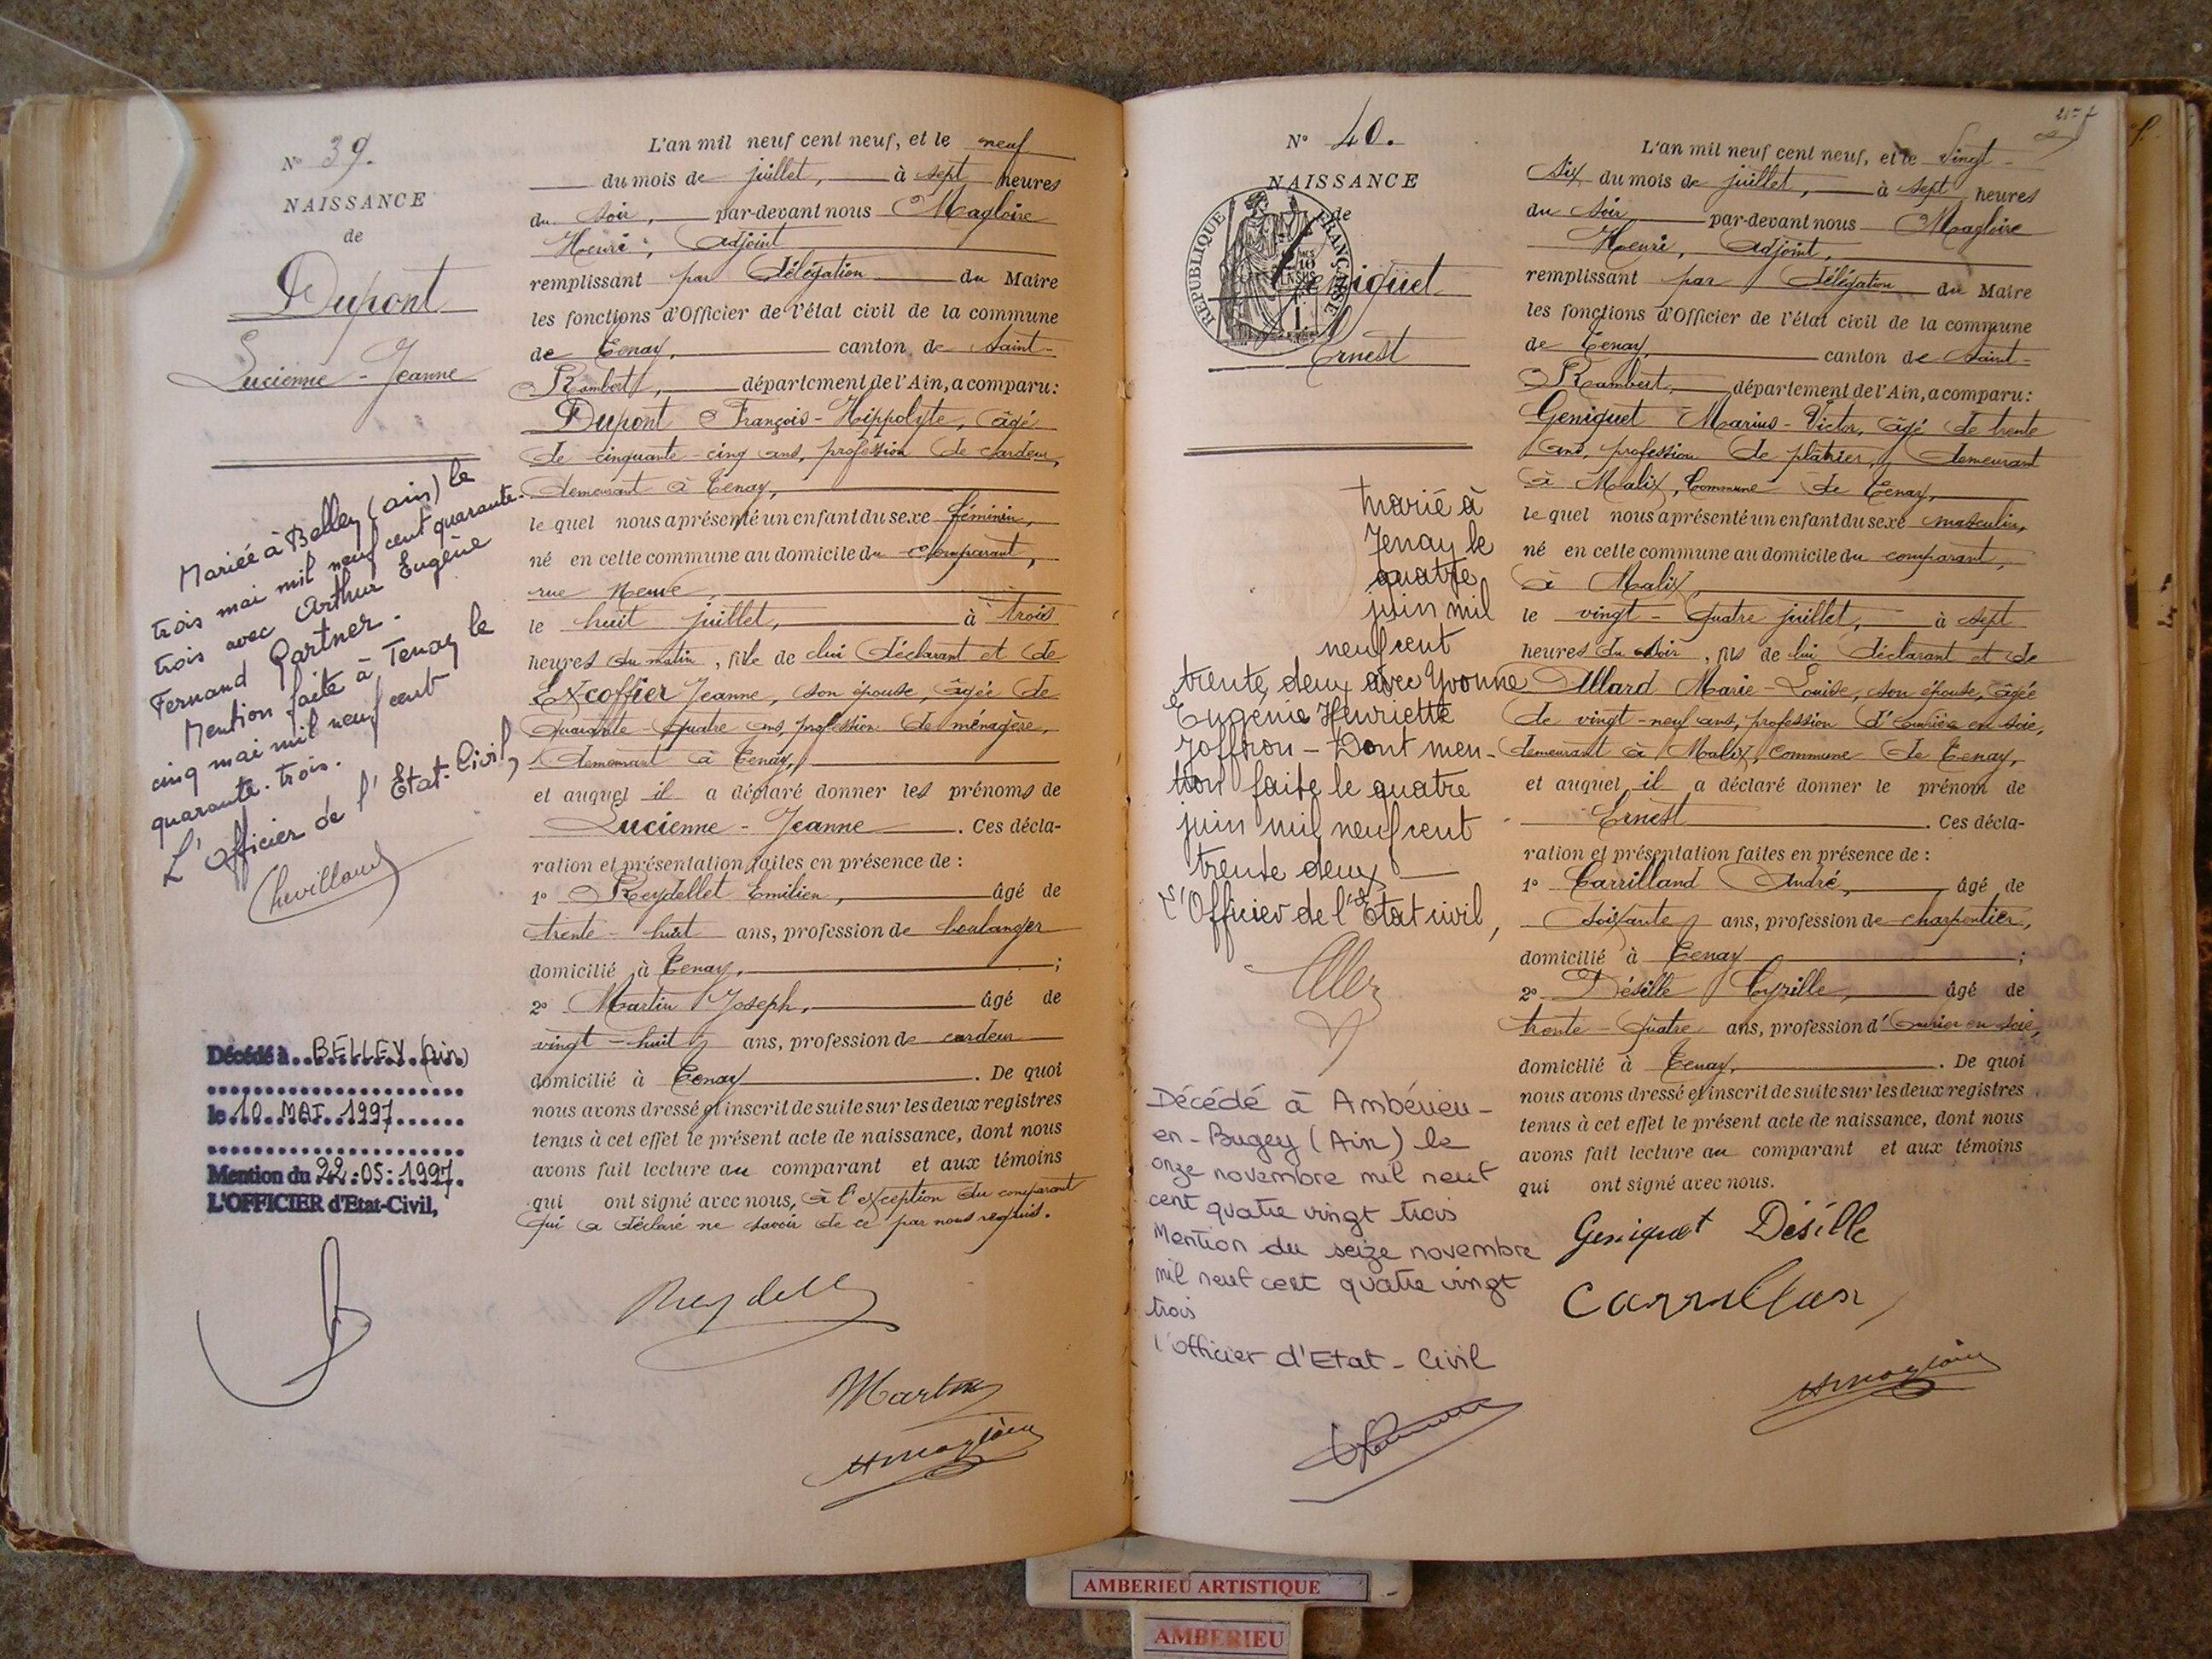 N° 39.
NAISSANCE
de
Dupont
Lucienne - Jeanne
Mariée à Belley (ain) le
trois mai mil neuf cent quarante-
trois avec Arthur Eugène
Fernand Gartner.
Mention faite à Tenay le
cinq mai mil neuf cent
quarante-trois.
L'Officier de l'Etat-Civil,
Chevilland
Décédé à BELLEY (Ain)
le 10 MAI 1997
Mention du 22.05.1997.
L'OFFICIER d'Etat-Civil,
L'an mil neuf cent neuf, et le neuf
du mois de juillet, à sept heures
du soir, par-devant nous Magloire
Henri, Adjoint
remplissant par Délégation du Maire
les fonctions d'Officier de l'état civil de la commune
de Tenay, canton de Saint-
Rambert, département de l'Ain, a comparu:
Dupont François-Hippolyte, âgé
de cinquante-cinq ans, profession de cardeur,
demeurant à Tenay,
le quel nous a présenté un enfant du sexe féminin,
né en cette commune au domicile du comparant,
rue Neuve,
le huit juillet, à trois
heures du matin, fille de lui déclarant et de
Excoffier Jeanne, son épouse, âgée de
quarante-quatre ans, profession de ménagère,
demeurant à Tenay,
et auquel il a déclaré donner les prénoms de
Lucienne - Jeanne. Ces décla-
ration et présentation faites en présence de :
1° Reydellet Emilien, âgé de
trente-huit ans, profession de boulanger
domicilié à Tenay, ;
2° Martin Joseph, âgé de
vingt-huit ans, profession de cardeur
domicilié à Tenay. De quoi
nous avons dressé et inscrit de suite sur les deux registres
tenus à cet effet le présent acte de naissance, dont nous
avons fait lecture au comparant et aux témoins
qui ont signé avec nous, à l'exception du comparant
qui a déclaré ne savoir de ce par nous requis.
Reydellet
Martin
H Magloire
N° 40.
NAISSANCE
de
REPUBLIQUE FRANÇAISE
Geniquet
Ernest
Marié à
Tenay le
quatre
juin mil
neuf cent
trente deux avec Yvonne
Eugénie Henriette
Joffron - Dont men-
tion faite le quatre
juin mil neuf cent
trente deux
L'Officier de l'Etat civil,
Décédé à Ambérieu-
en-Bugey (Ain) le
onze novembre mil neuf
cent quatre vingt trois
Mention du seize novembre
mil neuf cent quatre vingt
trois
l'officier d'Etat-Civil
L'an mil neuf cent neuf, et le vingt-
six du mois de juillet, à sept heures
du soir par-devant nous Magloire
Henri, Adjoint,
remplissant par Délégation du Maire
les fonctions d'Officier de l'état civil de la commune
de Tenay, canton de Saint-
Rambert, département de l'Ain, a comparu:
Geniquet Marius-Victor, âgé de trente
ans, profession de plâtrier, demeurant
à Malix, Commune de Tenay,
le quel nous a présenté un enfant du sexe masculin,
né en cette commune au domicile du comparant,
à Malix,
le vingt-quatre juillet, à sept
heures du soir, fils de lui déclarant et de
Allard Marie-Louise, son épouse, âgée
de vingt-neuf ans, profession d'ouvrière en soie,
demeurant à Malix, commune de Tenay,
et auquel il a déclaré donner le prénom de
Ernest. Ces décla-
ration et présentation faites en présence de :
1° Carrilland André, âgé de
soixante ans, profession de charpentier,
domicilié à Tenay ;
2° Désille Cyrille, âgé de
trente-quatre ans, profession d'ouvrier en soie,
domicilié à Tenay. De quoi
nous avons dressé et inscrit de suite sur les deux registres
tenus à cet effet le présent acte de naissance, dont nous
avons fait lecture au comparant et aux témoins
qui ont signé avec nous.
Geniquet Désille
Carrillan
H Magloire
AMBERIEU ARTISTIQUE
AMBERIEU